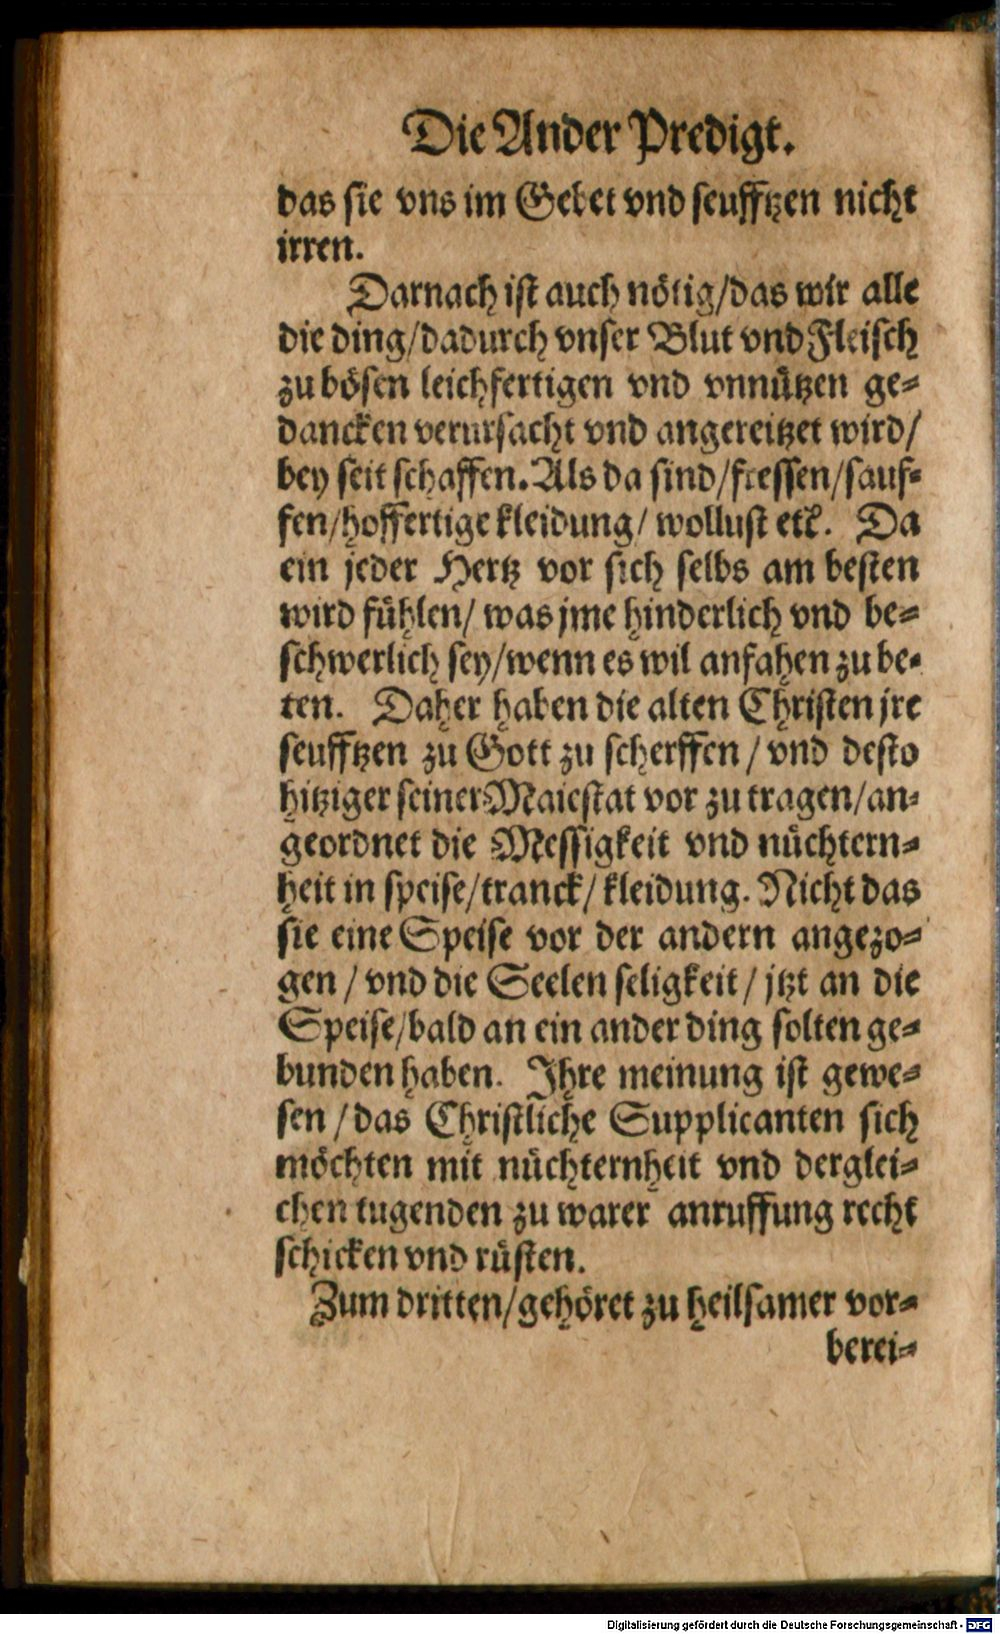 Die Ander Predigt.
das sie vns im Gebet vnd seufftzen nicht
irren.
Darnach ist auch nötig/das wir alle
die ding/dadurch vnser Blut vnd Fleisch
zu bösen leichfertigen vnd vnnützen ge-
dancken verursacht vnd angereitzet wird/
bey seit schaffen. Als da sind/fressen/sauf-
fen/hoffertige kleidung/ wollust etc. Da
ein jeder Hertz vor sich selbs am besten
wird fühlen/ was jme hinderlich vnd be-
schwerlich sey/wenn es wil anfahen zu be-
ten. Daher haben die alten Christen jre
seufftzen zu Gott zu scherffen / vnd desto
hitziger seiner Maiestat vor zu tragen/an-
geordnet die Messigkeit vnd nüchtern-
heit in speise/tranck/ kleidung. Nicht das
sie eine Speise vor der andern angezo-
gen / vnd die Seelen seligkeit / jtzt an die
Speise/bald an ein ander ding solten ge-
bunden haben. Ihre meinung ist gewe-
sen / das Christliche Supplicanten sich
möchten mit nüchternheit vnd derglei-
chen tugenden zu warer anruffung recht
schicken vnd rüsten.
Zum dritten/gehöret zu heilsamer vor-
berei-
Digitalisierung gefördert durch die Deutsche Forschungsgemeinschaft - DFG